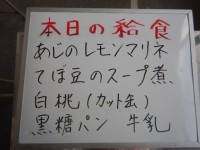 本日の給食
あじのレモンマリネ
てぼ豆のスープ煮
白桃(カット缶)
黒糖パン 牛乳